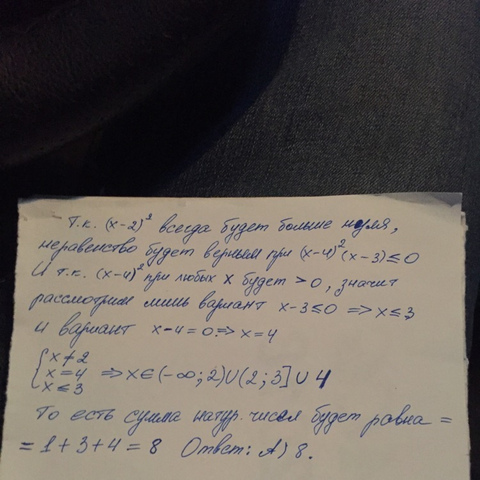 Т.к. (x-2)² всегда будет больше нуля,
неравенство будет верным при (x-4)²(x-3)≤0
И т.к. (x-4)² при любых x будет >0, значит
рассмотрим лишь вариант x-3≤0 ⇒ x≤3
и вариант x-4=0 ⇒ x=4
{x≠2
x=4 ⇒ x∈(-∞;2)∪(2;3]∪4
x≤3
То есть сумма натур. чисел будет равна =
= 1+3+4=8 Ответ: А) 8.